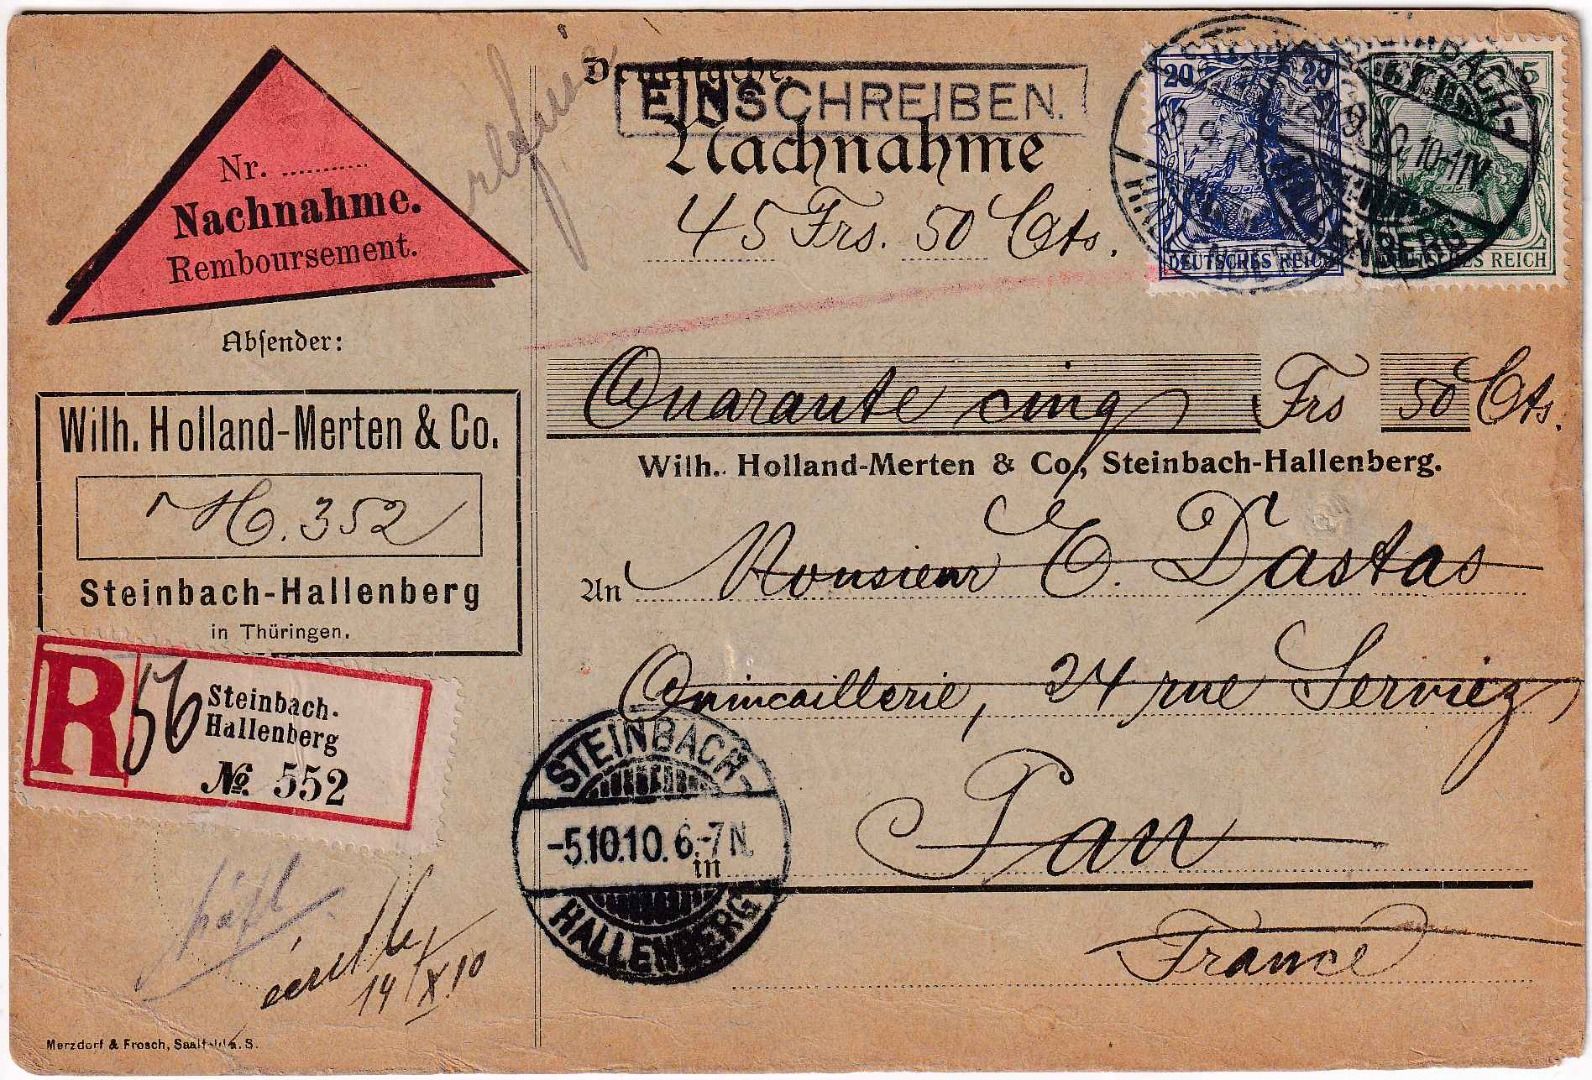 Nr. ............
Nachnahme.
Remboursement.
Drucksache.
EINSCHREIBEN.
Nachnahme
45 Frs. 50 Cts.
20 20
DEUTSCHES REICH
5
DEUTSCHES REICH
29.9.10. 10-11V
Absender:
Wilh. Holland-Merten & Co.
H. 352
Steinbach-Hallenberg
in Thüringen.
Quarante cinq Frs 50 Cts.
Wilh. Holland-Merten & Co., Steinbach-Hallenberg.
An Monsieur E. Dastas
Quincaillerie, 24 rue Serviez
in Pau
France
R 56 Steinbach-
Hallenberg
№ 552
STEINBACH-
-5.10.10. 6-7N.
HALLENBERG
14/X 10
Merzdorf & Frosch, Saalfeld a. S.